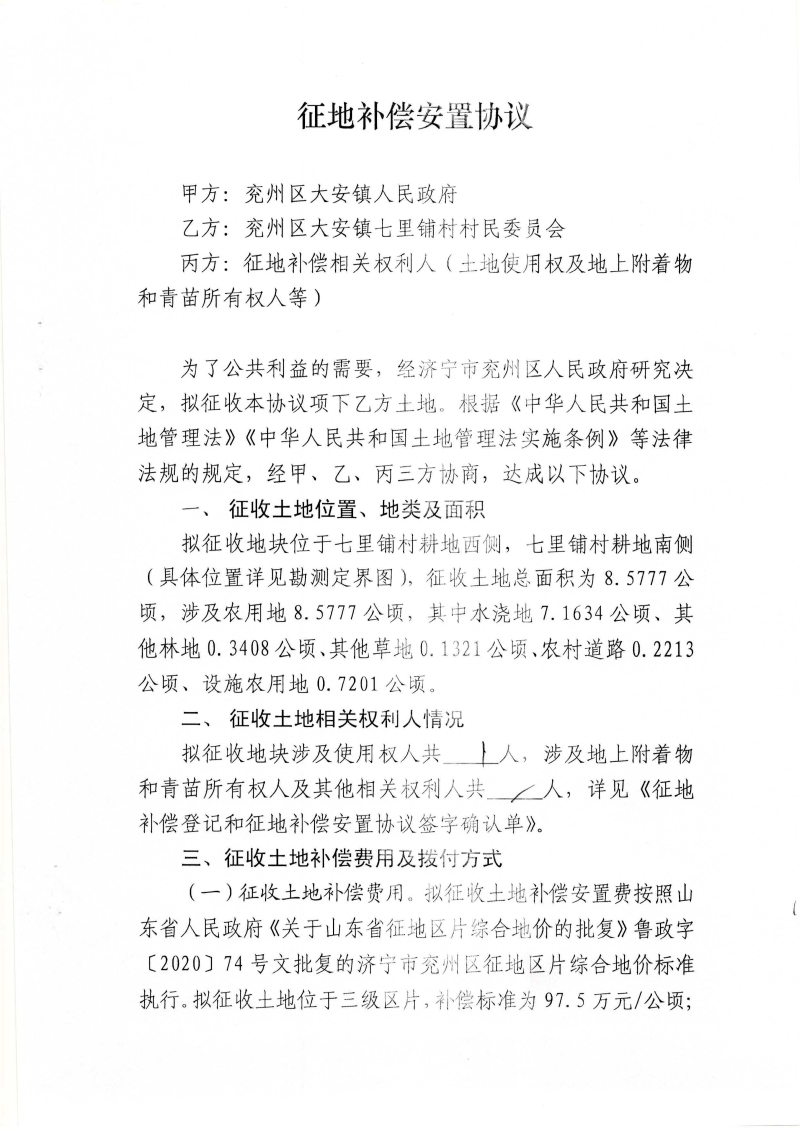 征地补偿安置协议
甲方：兖州区大安镇人民政府
乙方：兖州区大安镇七里铺村村民委员会
丙方：征地补偿相关权利人（土地使用权及地上附着物
和青苗所有权人等）
为了公共利益的需要，经济宁市兖州区人民政府研究决
定，拟征收本协议项下乙方土地。根据《中华人民共和国土
地管理法》《中华人民共和国土地管理法实施条例》等法律
法规的规定，经甲、乙、丙三方协商，达成以下协议。
一、征收土地位置、地类及面积
拟征收地块位于七里铺村耕地西侧，七里铺村耕地南侧
（具体位置详见勘测定界图），征收土地总面积为 8.5777 公
顷，涉及农用地 8.5777 公顷，其中水浇地 7.1634 公顷、其
他林地 0.3408 公顷、其他草地 0.1321 公顷、农村道路 0.2213
公顷、设施农用地 0.7201 公顷。
二、征收土地相关权利人情况
拟征收地块涉及使用权人共 1 人，涉及地上附着物
和青苗所有权人及其他相关权利人共 / 人，详见《征地
补偿登记和征地补偿安置协议签字确认单》。
三、征收土地补偿费用及拨付方式
（一）征收土地补偿费用。拟征收土地补偿安置费按照山
东省人民政府《关于山东省征地区片综合地价的批复》鲁政字
〔2020〕74 号文批复的济宁市兖州区征地区片综合地价标准
执行。拟征收土地位于三级区片，补偿标准为 97.5 万元/公顷；